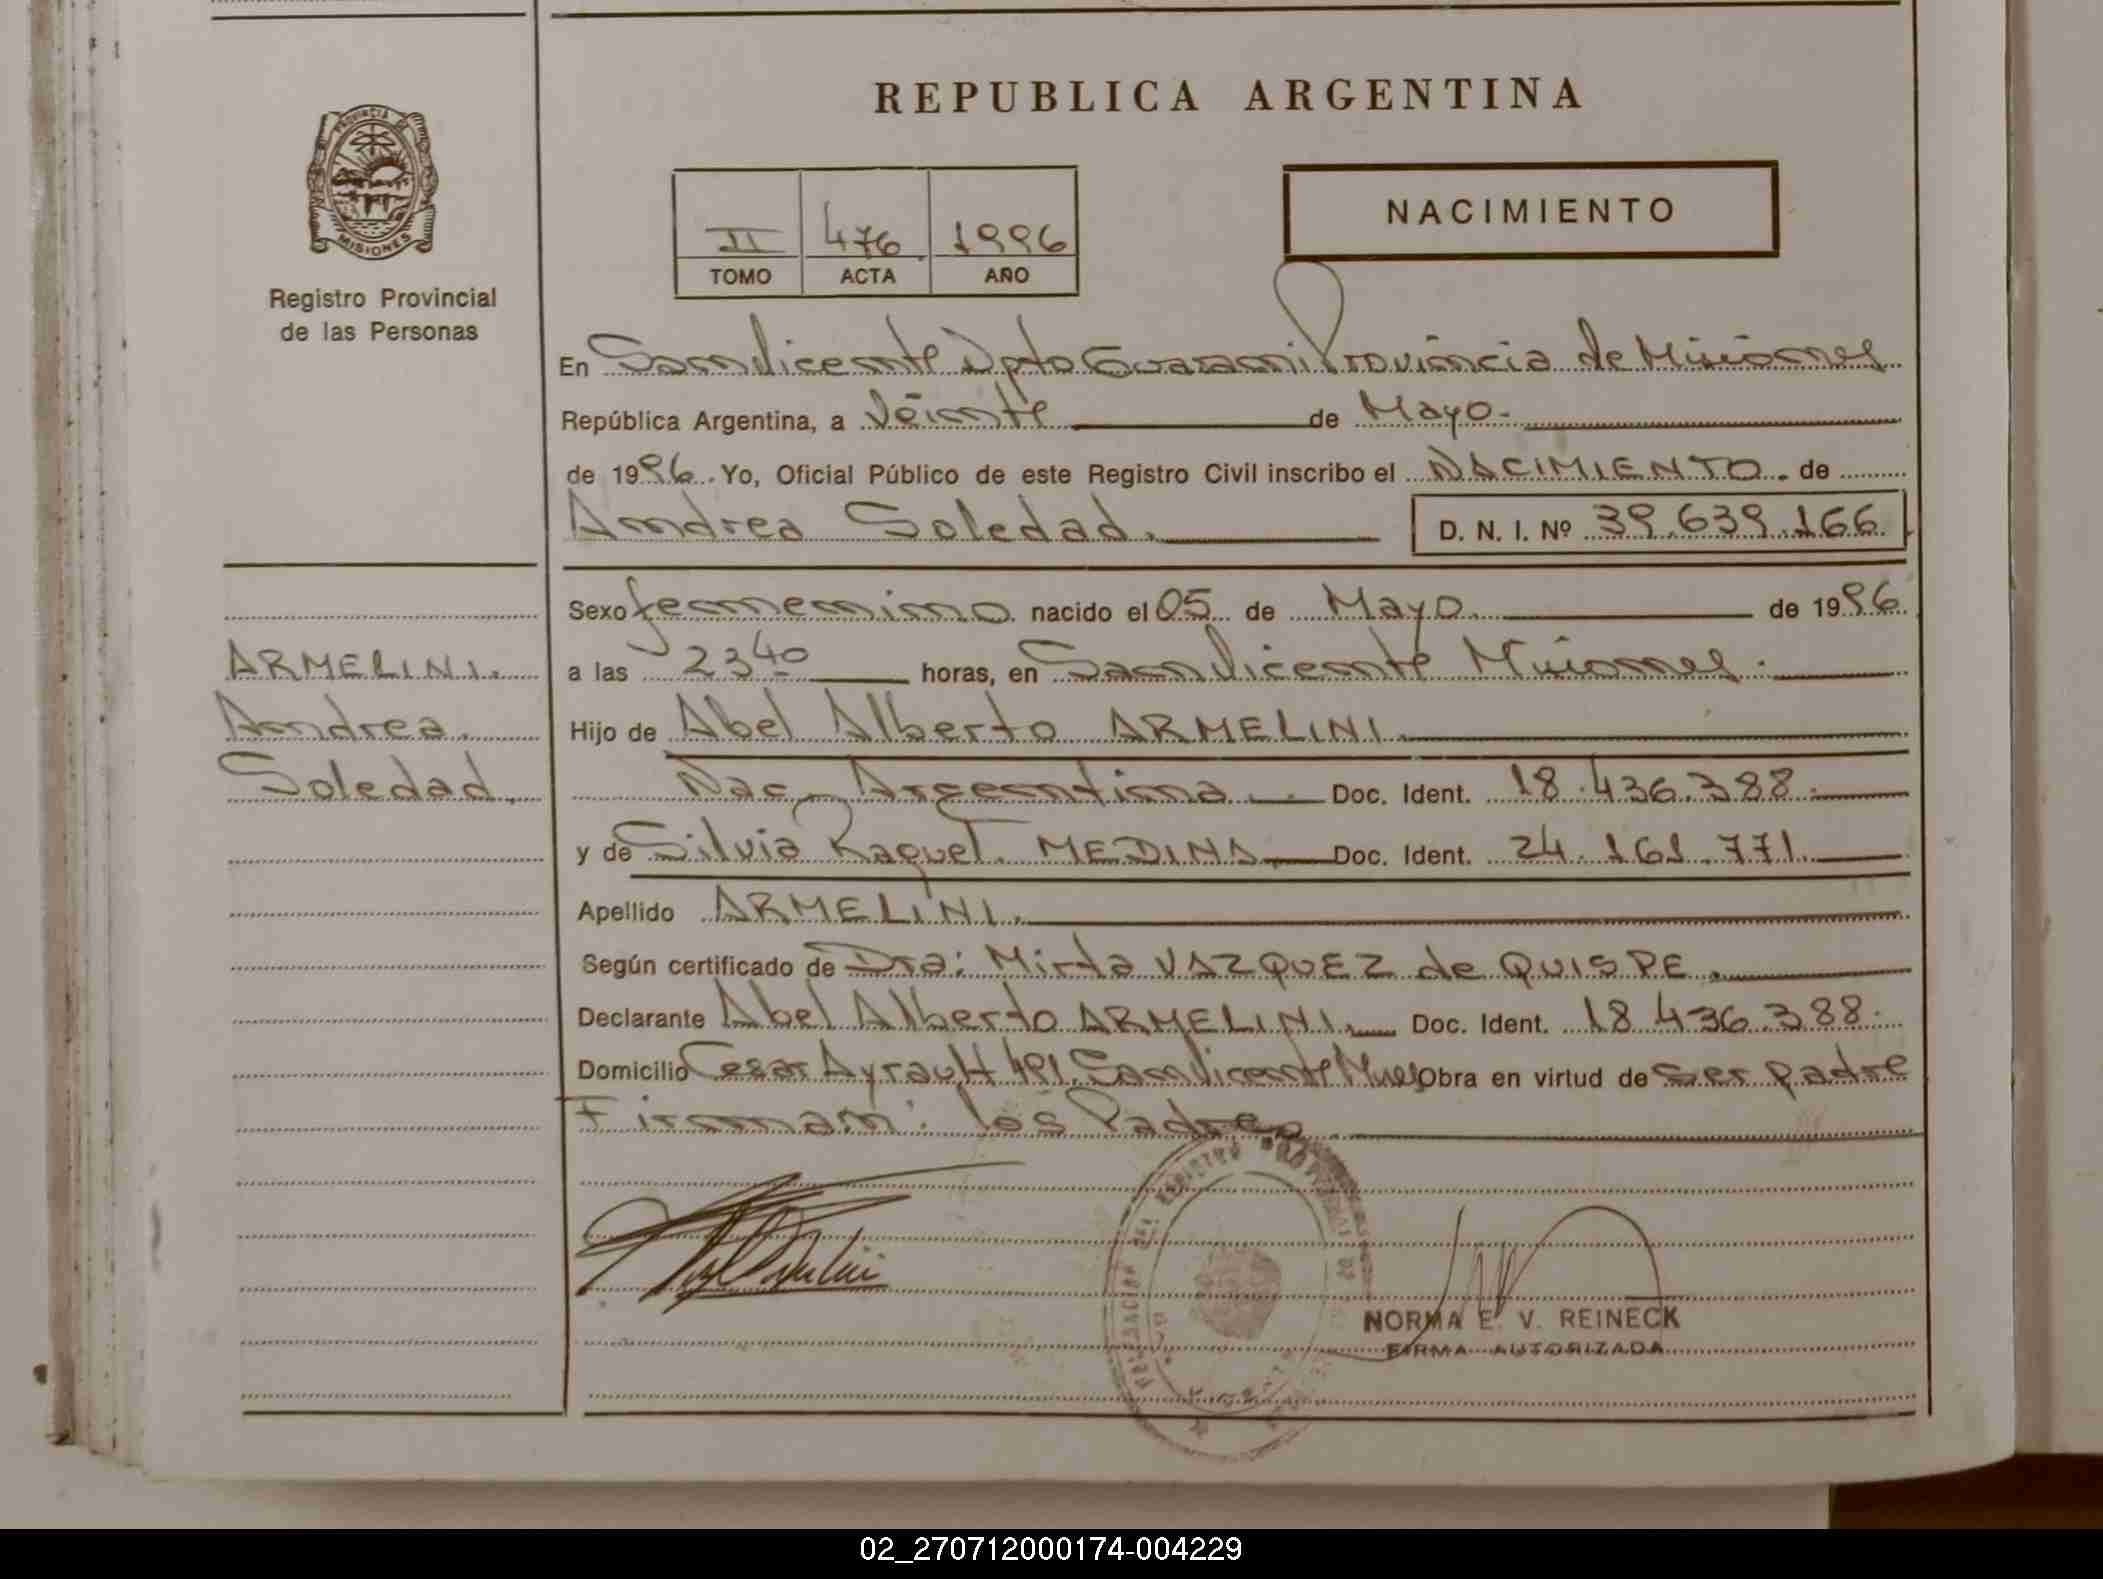 REPUBLICA ARGENTINA
PROVINCIA DE
MISIONES
Registro Provincial
de las Personas
II 476 1996
TOMO ACTA AÑO
NACIMIENTO
En San Vicente Dpto Guarani Provincia de Misiones
República Argentina, a Veinte de Mayo.
de 1996. Yo, Oficial Público de este Registro Civil inscribo el NACIMIENTO. de
Andrea Soledad. D. N. I. Nº 39.639.166.
Sexo femenino nacido el 05 de Mayo. de 1996.
ARMELINI.
a las 23 40 horas, en San Vicente Misiones.
Andrea.
Hijo de Abel Alberto ARMELINI.
Soledad.
Nac. Argentina. Doc. Ident. 18.436.388.
y de Silvia Raquel. MEDINA Doc. Ident. 24.161.771.
Apellido ARMELINI.
Según certificado de Dra: Mirta VAZQUEZ de QUISPE.
Declarante Abel Alberto ARMELINI. Doc. Ident. 18.436.388.
Domicilio Cesar Ayrault 491. San Vicente Mnes Obra en virtud de ser padre
Firman: los Padres
NORMA E. V. REINECK
FIRMA AUTORIZADA
02_270712000174-004229